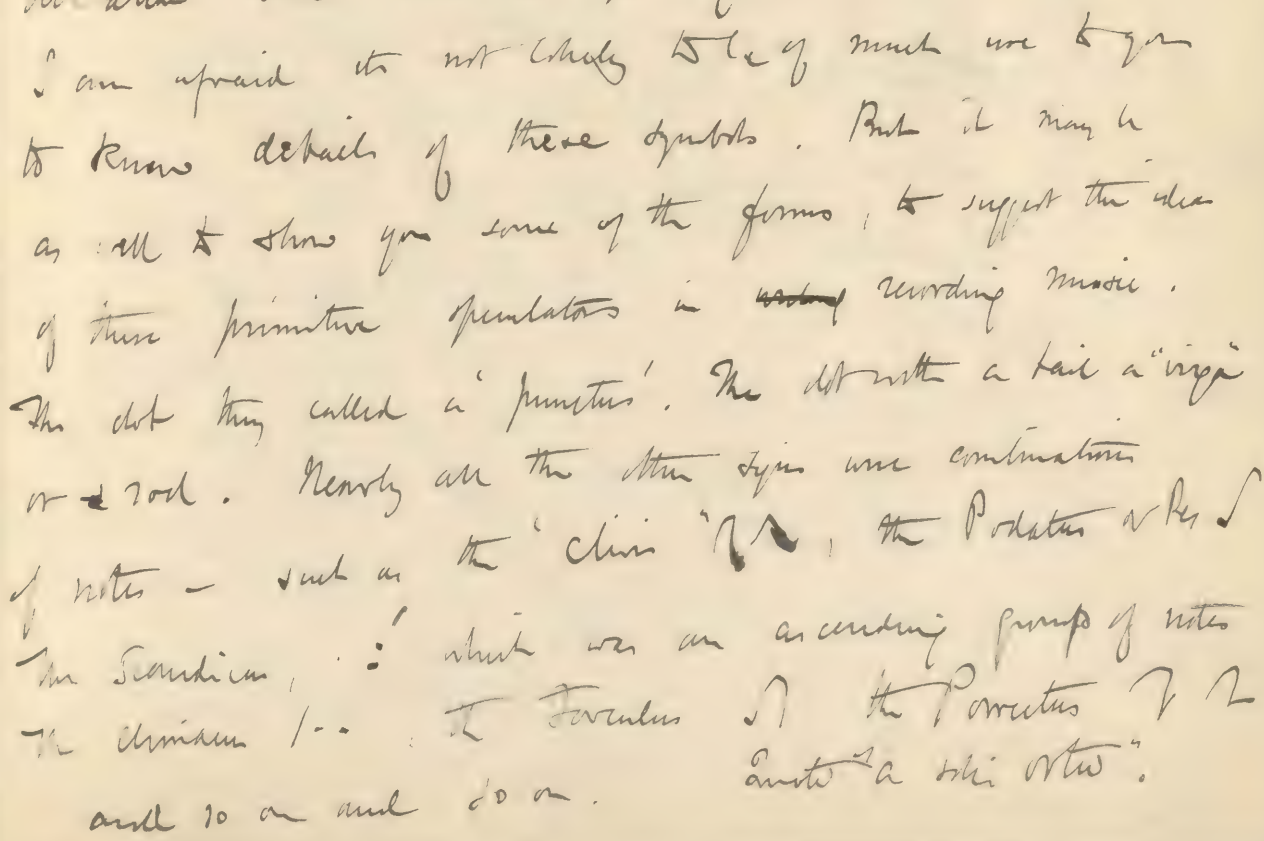 I am afraid its not likely to be of much use to you
to know details of these symbols. But it may be
as well to show you some of the forms, to suggest the ideas
of these primitive speculators in recording music.
The dot they called a 'punctus'. The dot with a tail a "virga"
or a rod. Nearly all the other signs were combinations
of notes – such as the "Clivis", the Podatus or Pes
The Scandicus, which was an ascending group of notes
The climacus the Torculus the Porrectus
and so on and so on. Quote "A solis ortu".